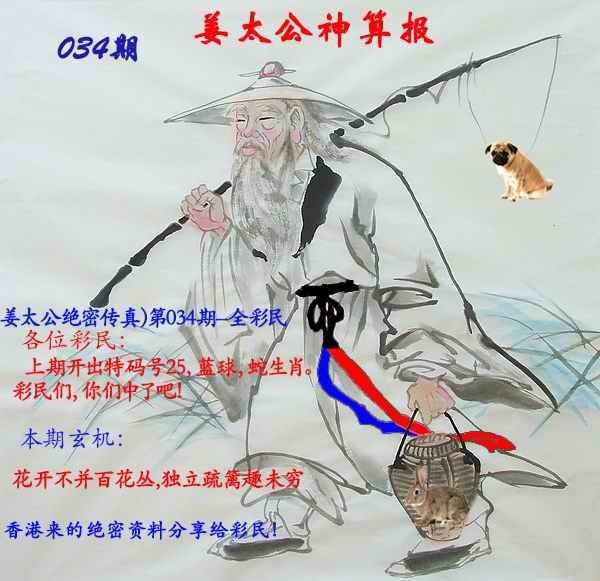 姜太公神算报
034期
姜太公绝密传真)第034期--全彩民
各位彩民:
上期开出特码号25,蓝球,蛇生肖。
彩民们,你们中了吧!
本期玄机:
花开不并百花丛,独立疏篱趣未穷
香港来的绝密资料分享给彩民!